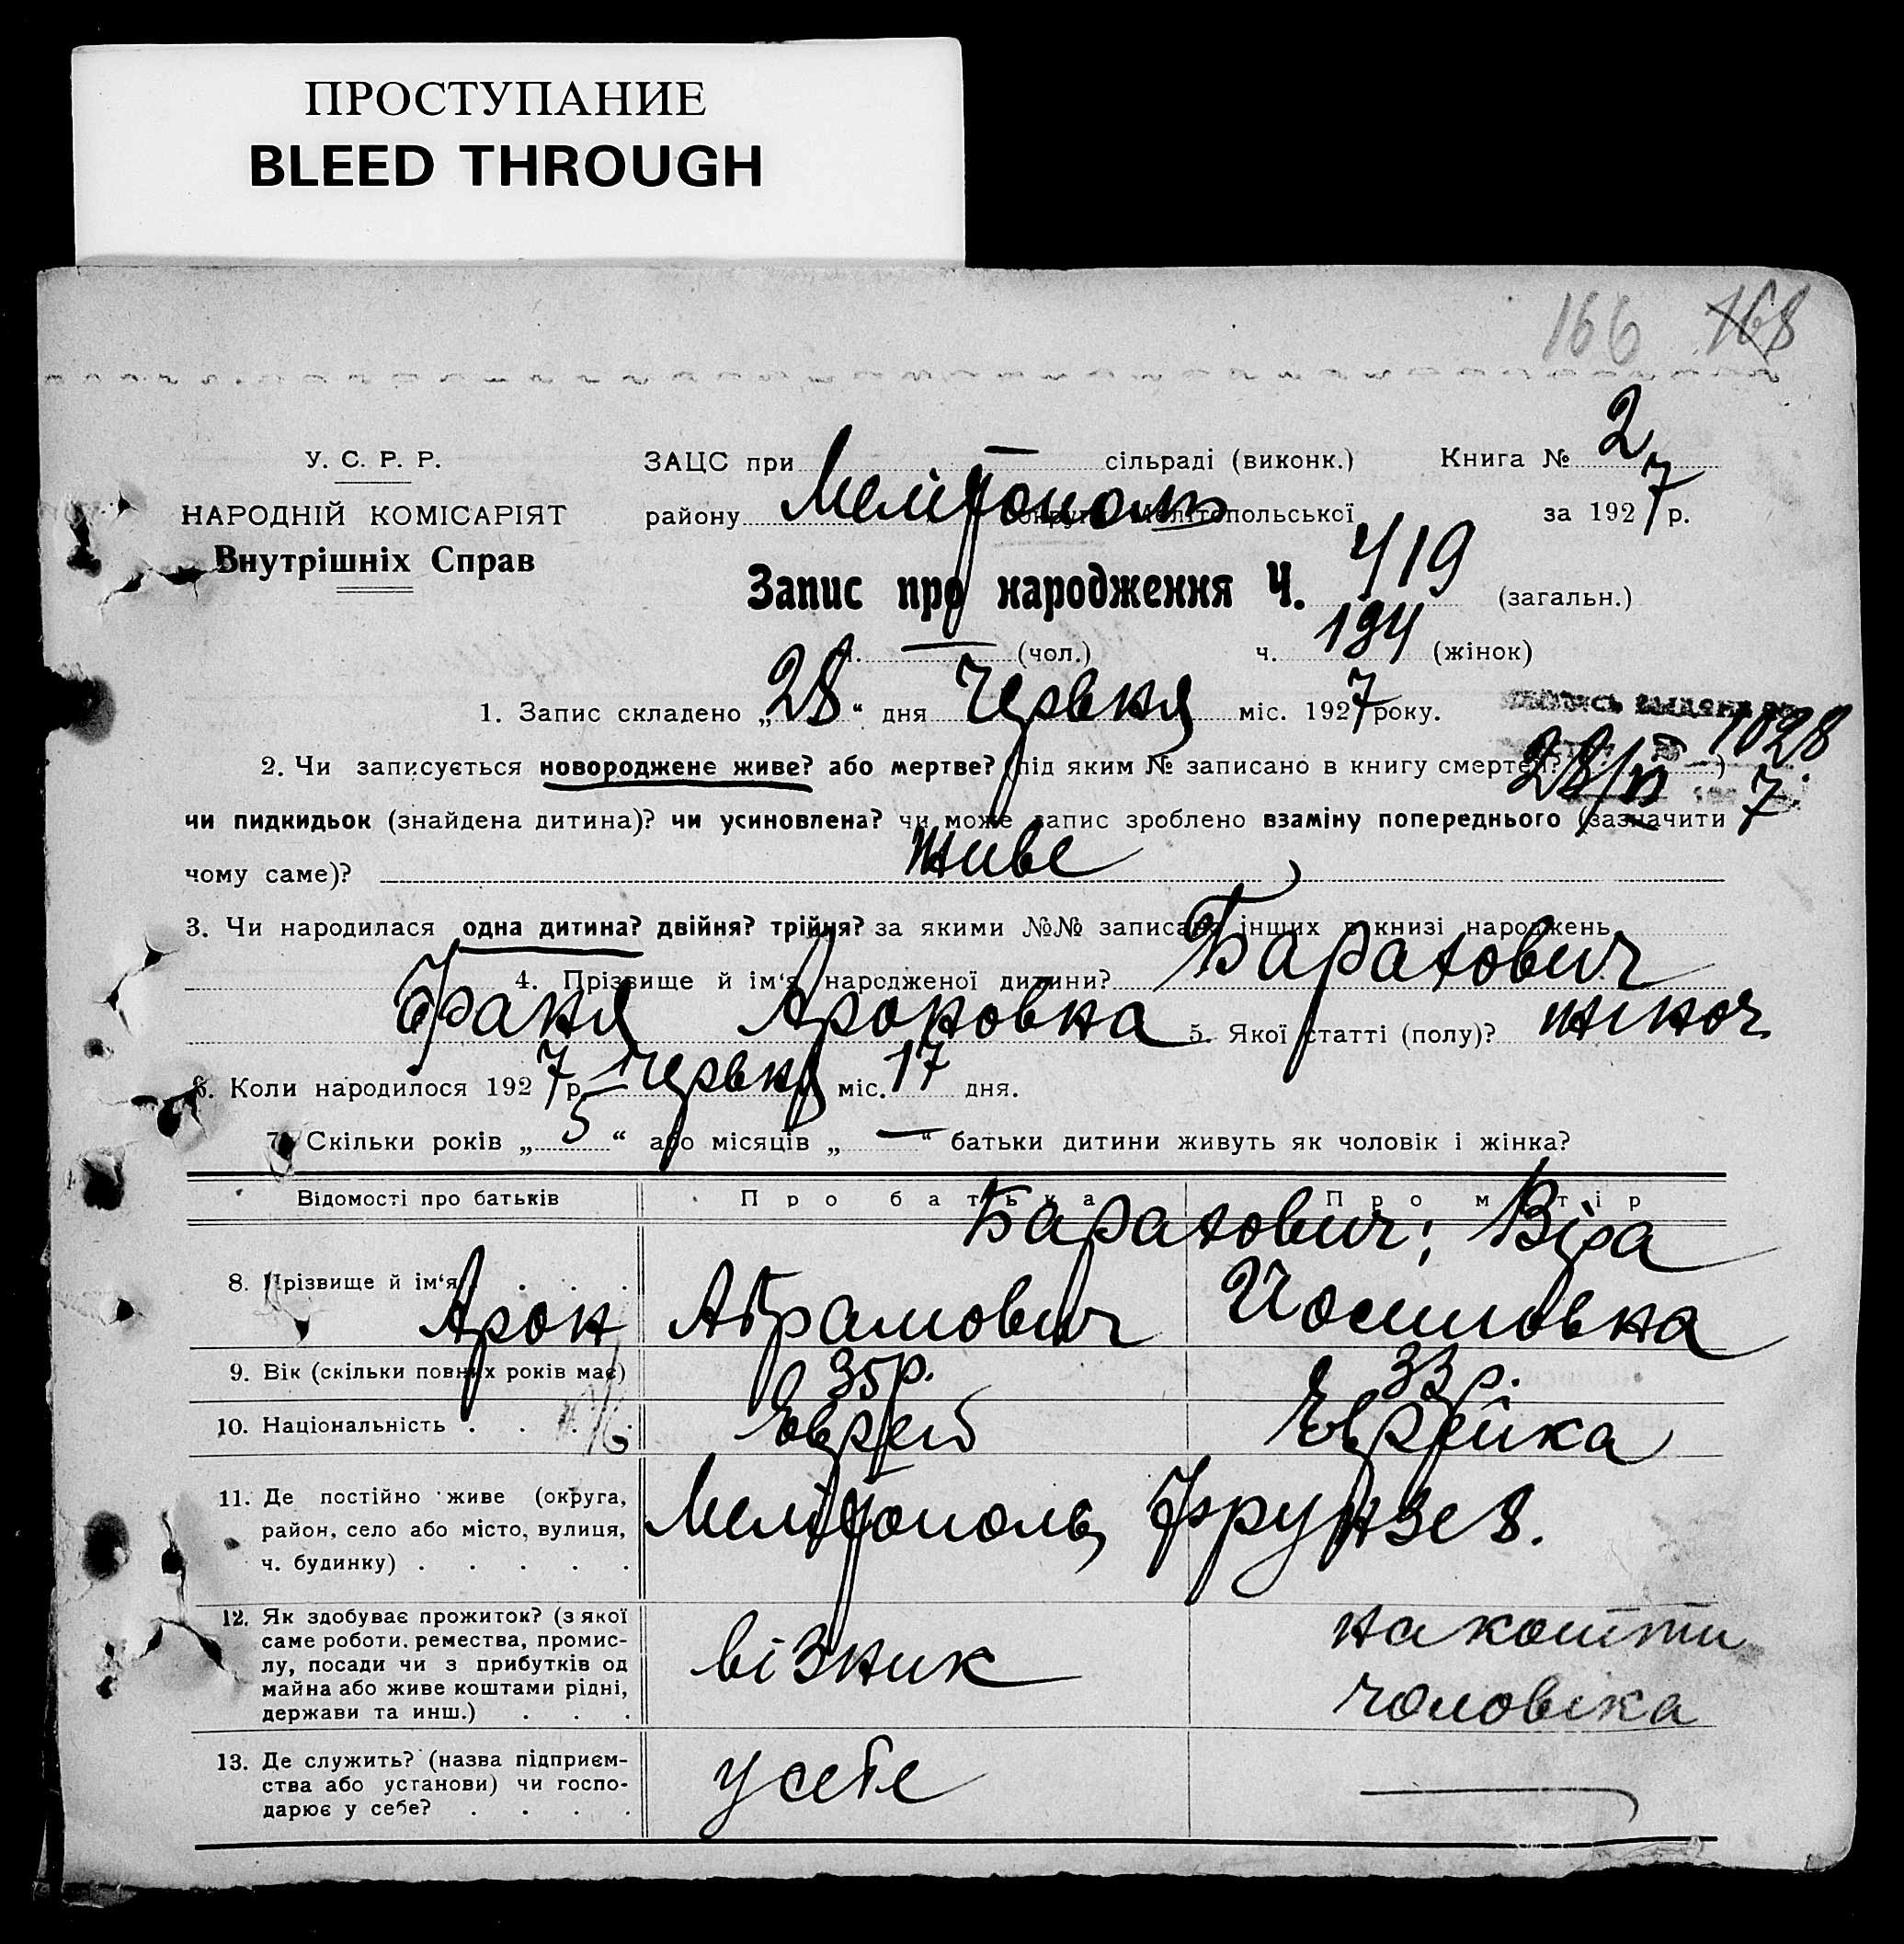 ПРОСТУПАНИЕ
BLEED THROUGH
166 168
У. С. Р. Р. ЗАЦС при — сільраді (виконк.) Книга № 2
НАРОДНІЙ КОМІСАРІЯТ району Мелітополь округи Мелітопольської за 1927 р.
Внутрішніх Справ
Запис про народження Ч. 419 (загальн.)
ч. — (чол.) ч. 194 (жінок)
1. Запис складено „28“ дня Червня міс. 1927 року.
1028
2. Чи записується новороджене живе? або мертве? (під яким № записано в книгу смертей? )
28/VI 7
чи пидкидьок (знайдена дитина)? чи усиновлена? чи може запис зроблено взаміну попереднього (зазначити
чому саме)? живе
3. Чи народилася одна дитина? двійня? трійня? за якими №№ записано інших в книзі народжень
4. Прізвище й ім‘я народженої дитини? Барахович
Фаня Ароновна 5. Якої статті (полу)? жіноч.
6. Коли народилося 1927 р. Червня міс. 17 дня.
7. Скільки років „5“ або місяців „—“ батьки дитини живуть як чоловік і жінка?
Відомості про батьків Про батька Про матір
Барахович; Віра
8. Прізвище й ім‘я . . . Арон Абрамович Йосиповна
9. Вік (скільки повних років має) 35 р. 33 р.
10. Національність . . . . Єврей Єврейка
11. Де постійно живе (округа,
район, село або місто, вулиця, Мелітополь, Фрунзе 8.
ч. будинку) . . . . .
12. Як здобуває прожиток? (з якої
саме роботи, ремества, промис-
лу, посади чи з прибутків од
майна або живе коштами рідні,
держави та инш.) . . .
візник на кошти
чоловіка
13. Де служить? (назва підприєм-
ства або установи) чи госпо-
дарює у себе? . . . .
у себе —